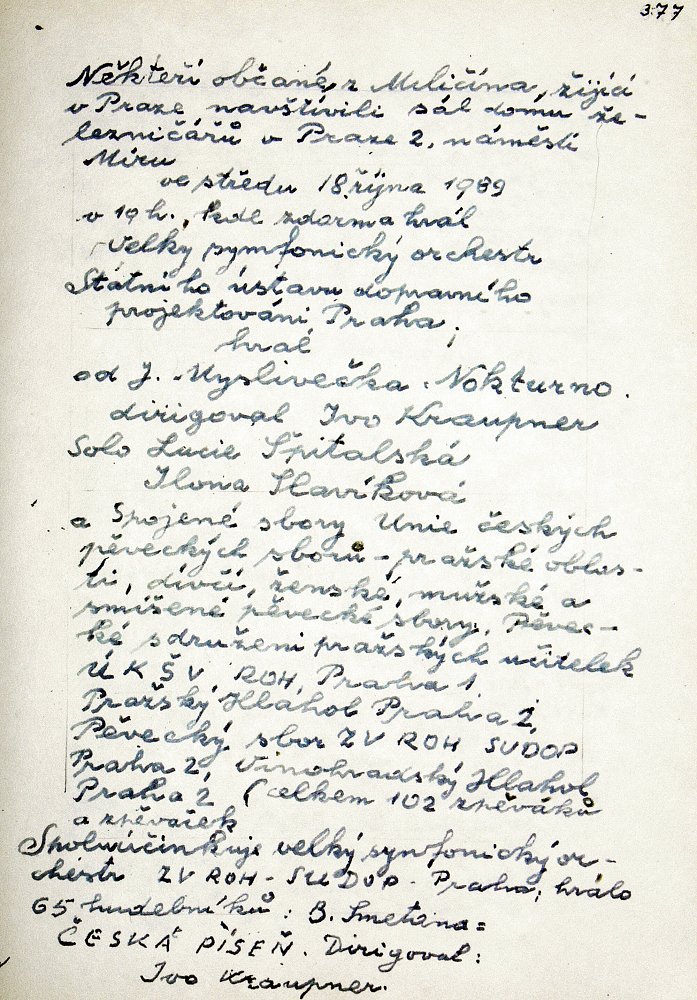 377
Někteří občané, z Miličína, žijící
v Praze navštívili sál domu že-
lezničářů v Praze 2, náměstí
Míru
ve středu 18. října 1989
v 19 h., kde zdarma hrál
Velký symfonický orchestr
Státního ústavu dopravního
projektování Praha,
hrál
od J. Myslivečka. Nokturno.
dirigoval Ivo Kraupner
Solo Lucie Špitalská
Ilona Slavíková
a Spojené sbory Unie českých
pěveckých sborů - pražské oblas-
ti, dívčí, ženské, mužské a
smíšené pěvecké sbory, Pěvec-
ké sdružení pražských učitelek
ÚKŠV ROH, Praha 1
Pražský Hlahol Praha 2,
Pěvecký sbor ZV ROH SUDOP
Praha 2, Vinohradský Hlahol
Praha 2 (celkem 102 zpěváků
a zpěvaček
Spoluúčinkuje velký symfonický or-
chestr ZV ROH - SUDOP - Praha, hrálo
65 hudebníků: B. Smetana =
ČESKÁ PÍSEŇ. Dirigoval:
Ivo Kraupner.